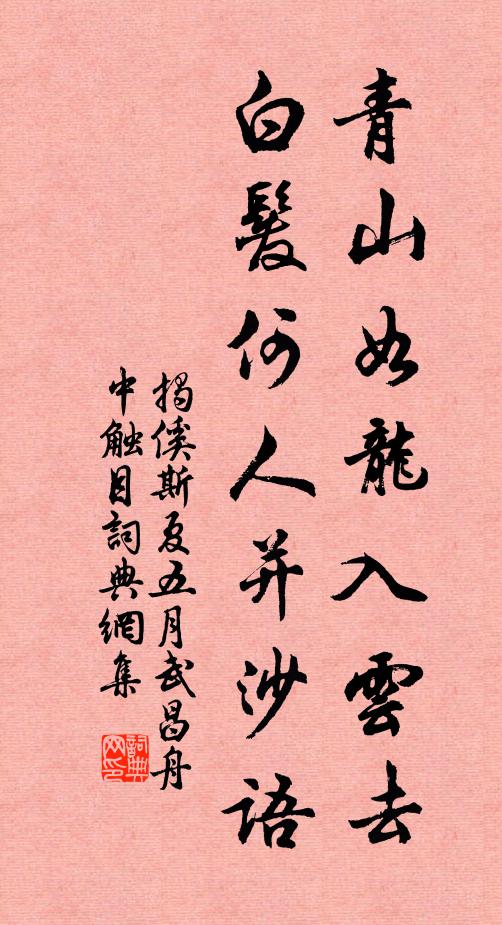 青山如龍入雲去
白髮何人并沙語
揭傒斯夏五月武昌舟
中触目詞典網集
詞典
网印